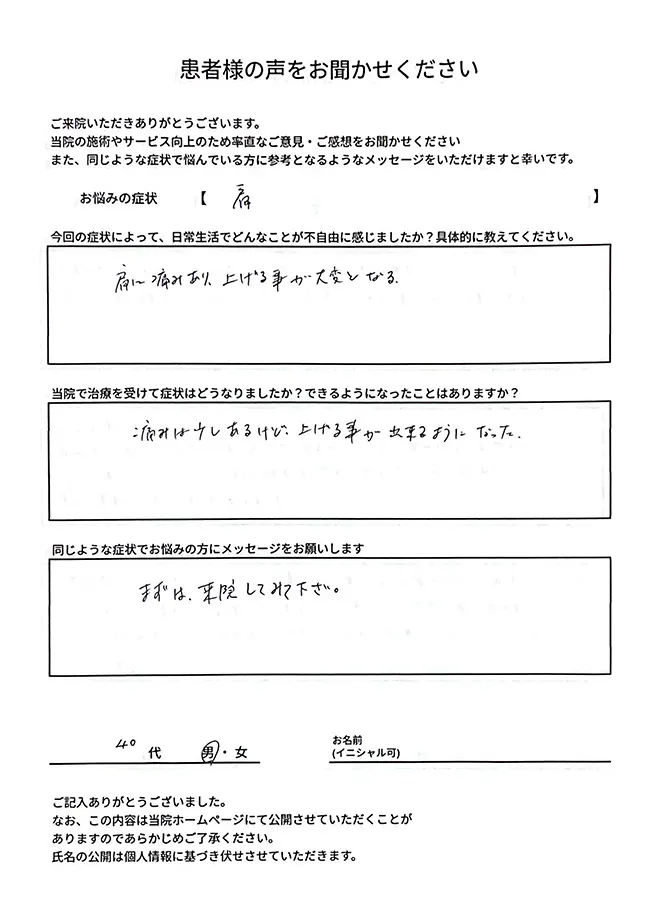 患者様の声をお聞かせください
ご来院いただきありがとうございます。
当院の施術やサービス向上のため率直なご意見・ご感想をお聞かせください
また、同じような症状で悩んでいる方に参考となるようなメッセージをいただけますと幸いです。
お悩みの症状 【 肩 】
今回の症状によって、日常生活でどんなことが不自由に感じましたか？具体的に教えてください。
肩に痛みあり、上げる事が大変となる。
当院で治療を受けて症状はどうなりましたか？できるようになったことはありますか？
痛みは少しあるけど、上げる事が出来るようになった。
同じような症状でお悩みの方にメッセージをお願いします
まずは、来院してみて下さい。
40 代 男・女
お名前
(イニシャル可)
ご記入ありがとうございました。
なお、この内容は当院ホームページにて公開させていただくことが
ありますのであらかじめご了承ください。
氏名の公開は個人情報に基づき伏せさせていただきます。